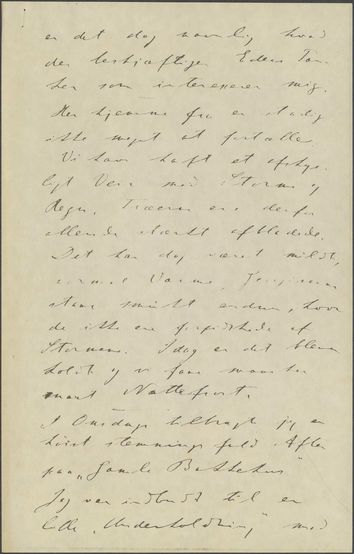 er det dog navnlig hvad
der beskjæftiger Eders Tan-
ker som interesserer mig.
Her hjemme fra er stadig
ikke meget at fortælle.
Vi har haft et afskye-
ligt Veir med Storm og
Regn. Træerne ere derfor
allerede stærkt afbladede.
Det har dog været mildt,
Varme,
staae smukt endnu, hvor
de ikke ere af
Stormen. Idag er det bleven
koldt og vi faae maaske
snart Nattefrost.
I Onsdags tilbragte jeg en
høist stemningsfuld Aften
paa "Gamle Bakkehus"
Jeg var indbudt til en
lille "Underholdning" med